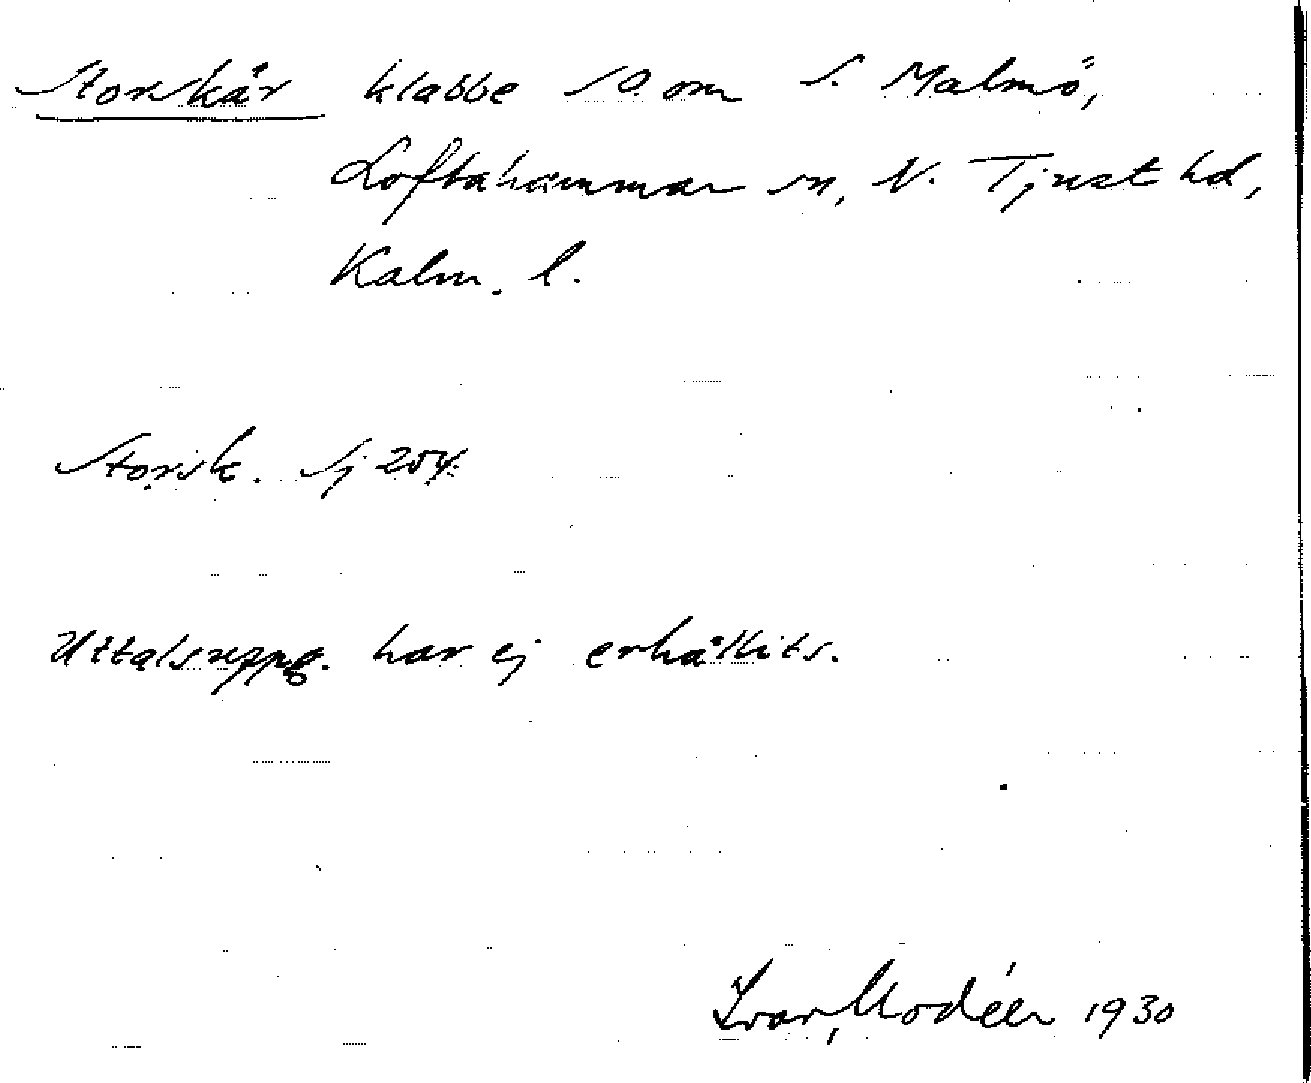 Storskär klabbe SO. om S. Malmö,
Loftahammar sn, N. Tjust hd,
Kalm. l.
Storsk. Sj 204.
Uttalsuppg. har ej erhållits.
Ivar Modéer 1930